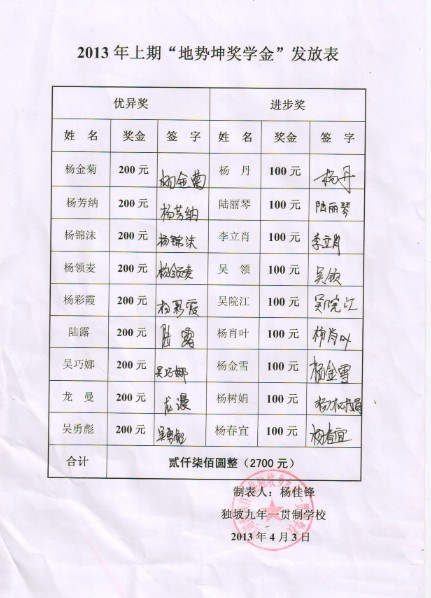 2013年上期“地势坤奖学金”发放表
优异奖 进步奖
姓 名 奖金 签 字 姓 名 奖金 签 字
杨金菊 200元 杨金菊 杨 丹 100元 杨丹
杨芳纳 200元 杨芳纳 陆丽琴 100元 陆丽琴
杨锦沫 200元 杨锦沫 李立肖 100元 李立肖
杨领麦 200元 杨领麦 吴 领 100元 吴领
杨彩霞 200元 杨彩霞 吴院江 100元 吴院江
陆露 200元 陆露 杨肖叶 100元 杨肖叶
吴巧娜 200元 吴巧娜 杨金雪 100元 杨金雪
龙 曼 200元 龙漫 杨树娟 100元 杨树娟
吴勇彪 200元 吴勇彪 杨春宜 100元 杨春宜
合计 贰仟柒佰圆整（2700元）
制表人：杨佳锋
独坡九年一贯制学校
2013年4月3日